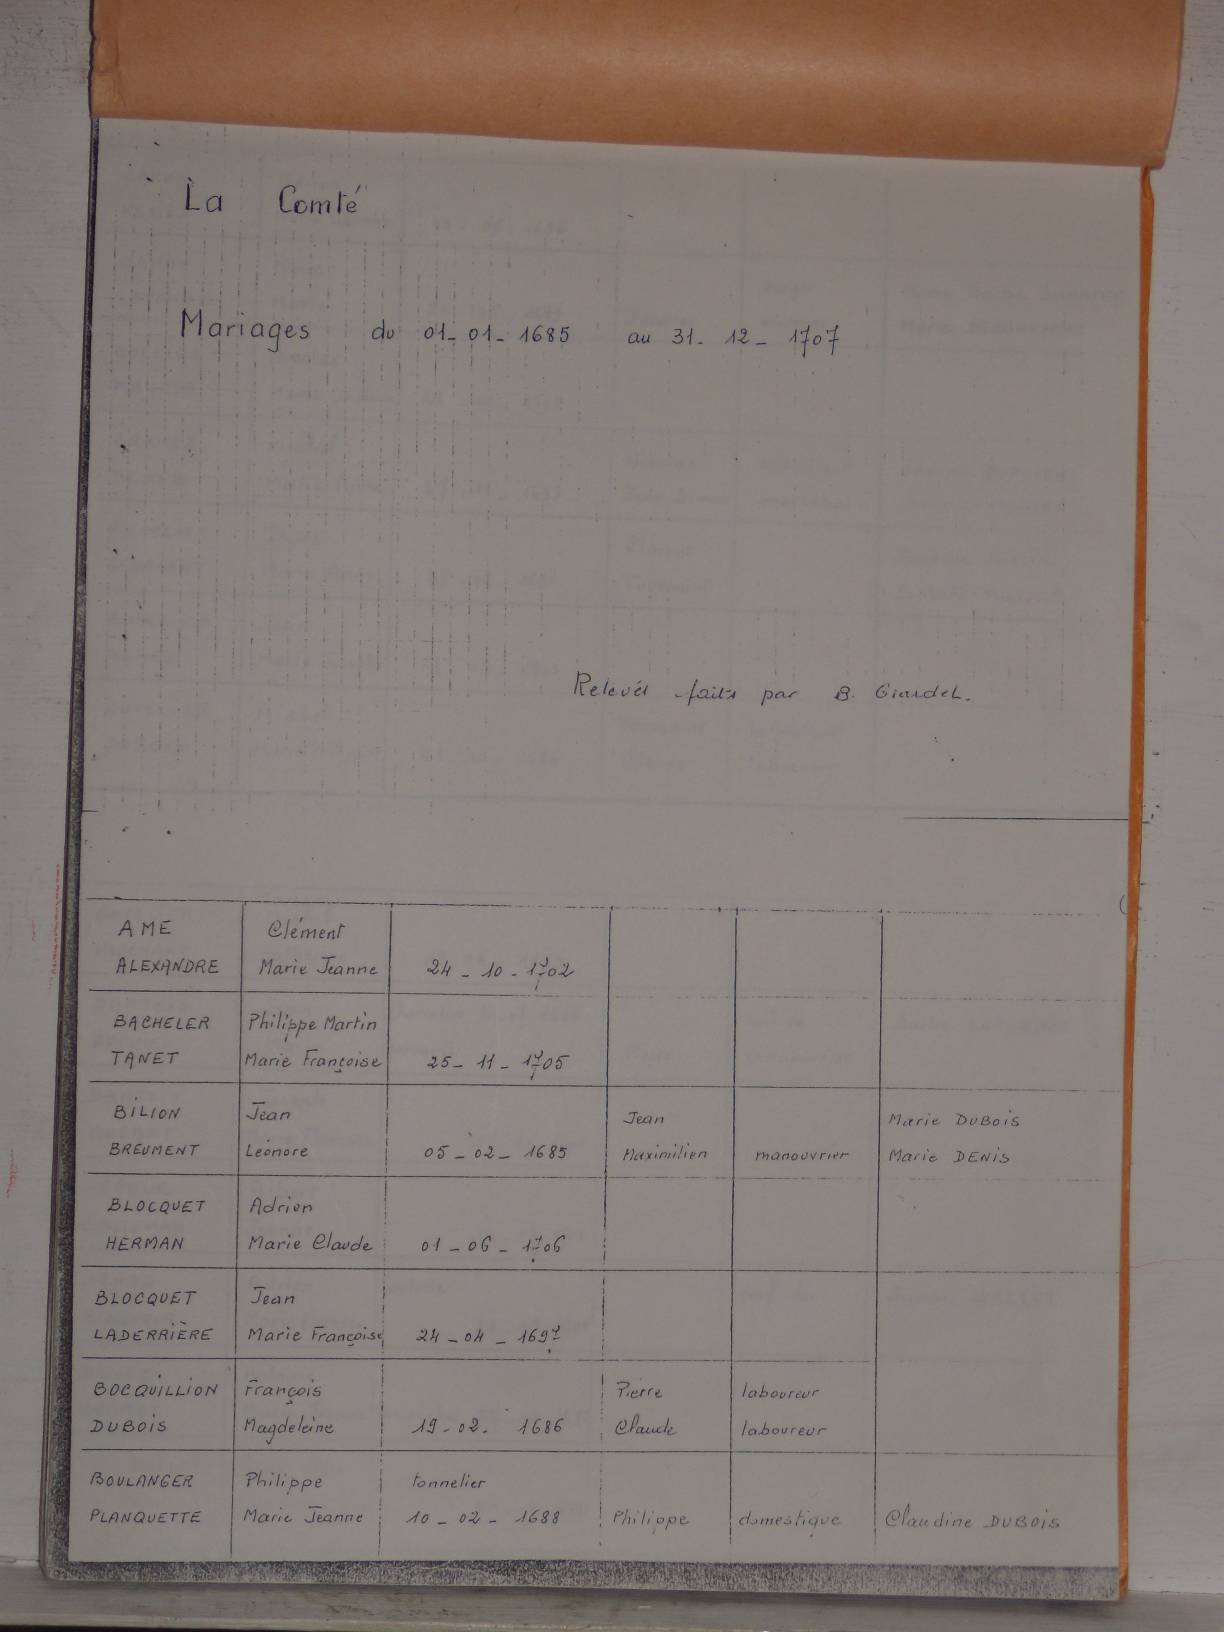 La Comté
Mariages du 01-01-1685 au 31-12-1707
Relevés faits par B.
AME Clément
ALEXANDRE Marie Jeanne 24-10-1702
BACHELER Philippe Martin
TANET Marie Françoise 25-11-1705
BILION Jean Jean Marie DUBOIS
BREUMENT Léonore 05-02-1685 Maximilien manouvrier Marie DENIS
BLOCQUET Adrien
HERMAN Marie Claude 01-06-1706
BLOCQUET Jean
LADERRIÈRE Marie Françoise 24-04-1697
BOCQUILLION François Pierre laboureur
DUBOIS Magdeleine 19-02. 1686 Claude laboureur
BOULANGER Philippe tonnelier
PLANQUETTE Marie Jeanne 10-02-1688 Philippe domestique Claudine DUBOIS